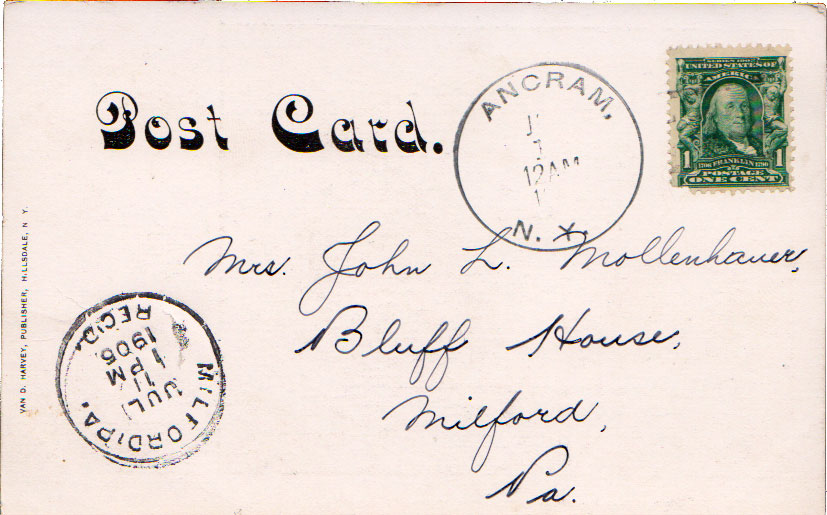 Post Card.
ANCRAM,
12AM
N. Y.
SERIES 1902
UNITED STATES OF
AMERICA
1 1
1706 FRANKLIN 1790
POSTAGE
ONE CENT
Mrs. John L. Mollenhauer,
Bluff House,
Milford,
Pa.
VAN D. HARVEY, PUBLISHER, HILLSDALE, N Y.
MILFORD, PA.
JUL
1 PM
REC'D.